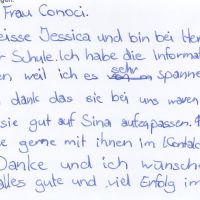 Frau Conoci.
eisse Jessica und bin bei Her
r Schule. Ich habe die Informat
en weil ich es sehr spanne
dank das sie bei uns waren
sie gut auf Sina aufzupassen.
e gerne mit ihnen im Kontak
Danke und ich wünsche
alles gute und viel Erfolg im